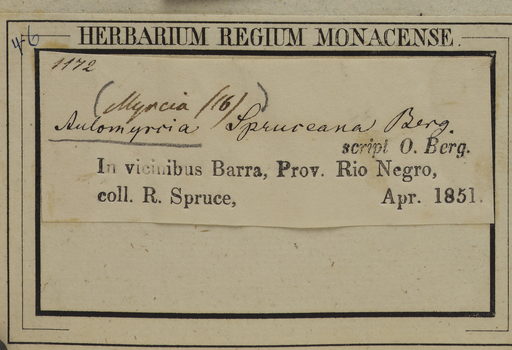 4-6
HERBARIUM REGIUM MONACENSE.
1172
(Myrcia (16))
Aulomyrcia Spruceana Berg.
script O. Berg.
In vicinibus Barra, Prov. Rio Negro,
coll. R. Spruce, Apr. 1851.